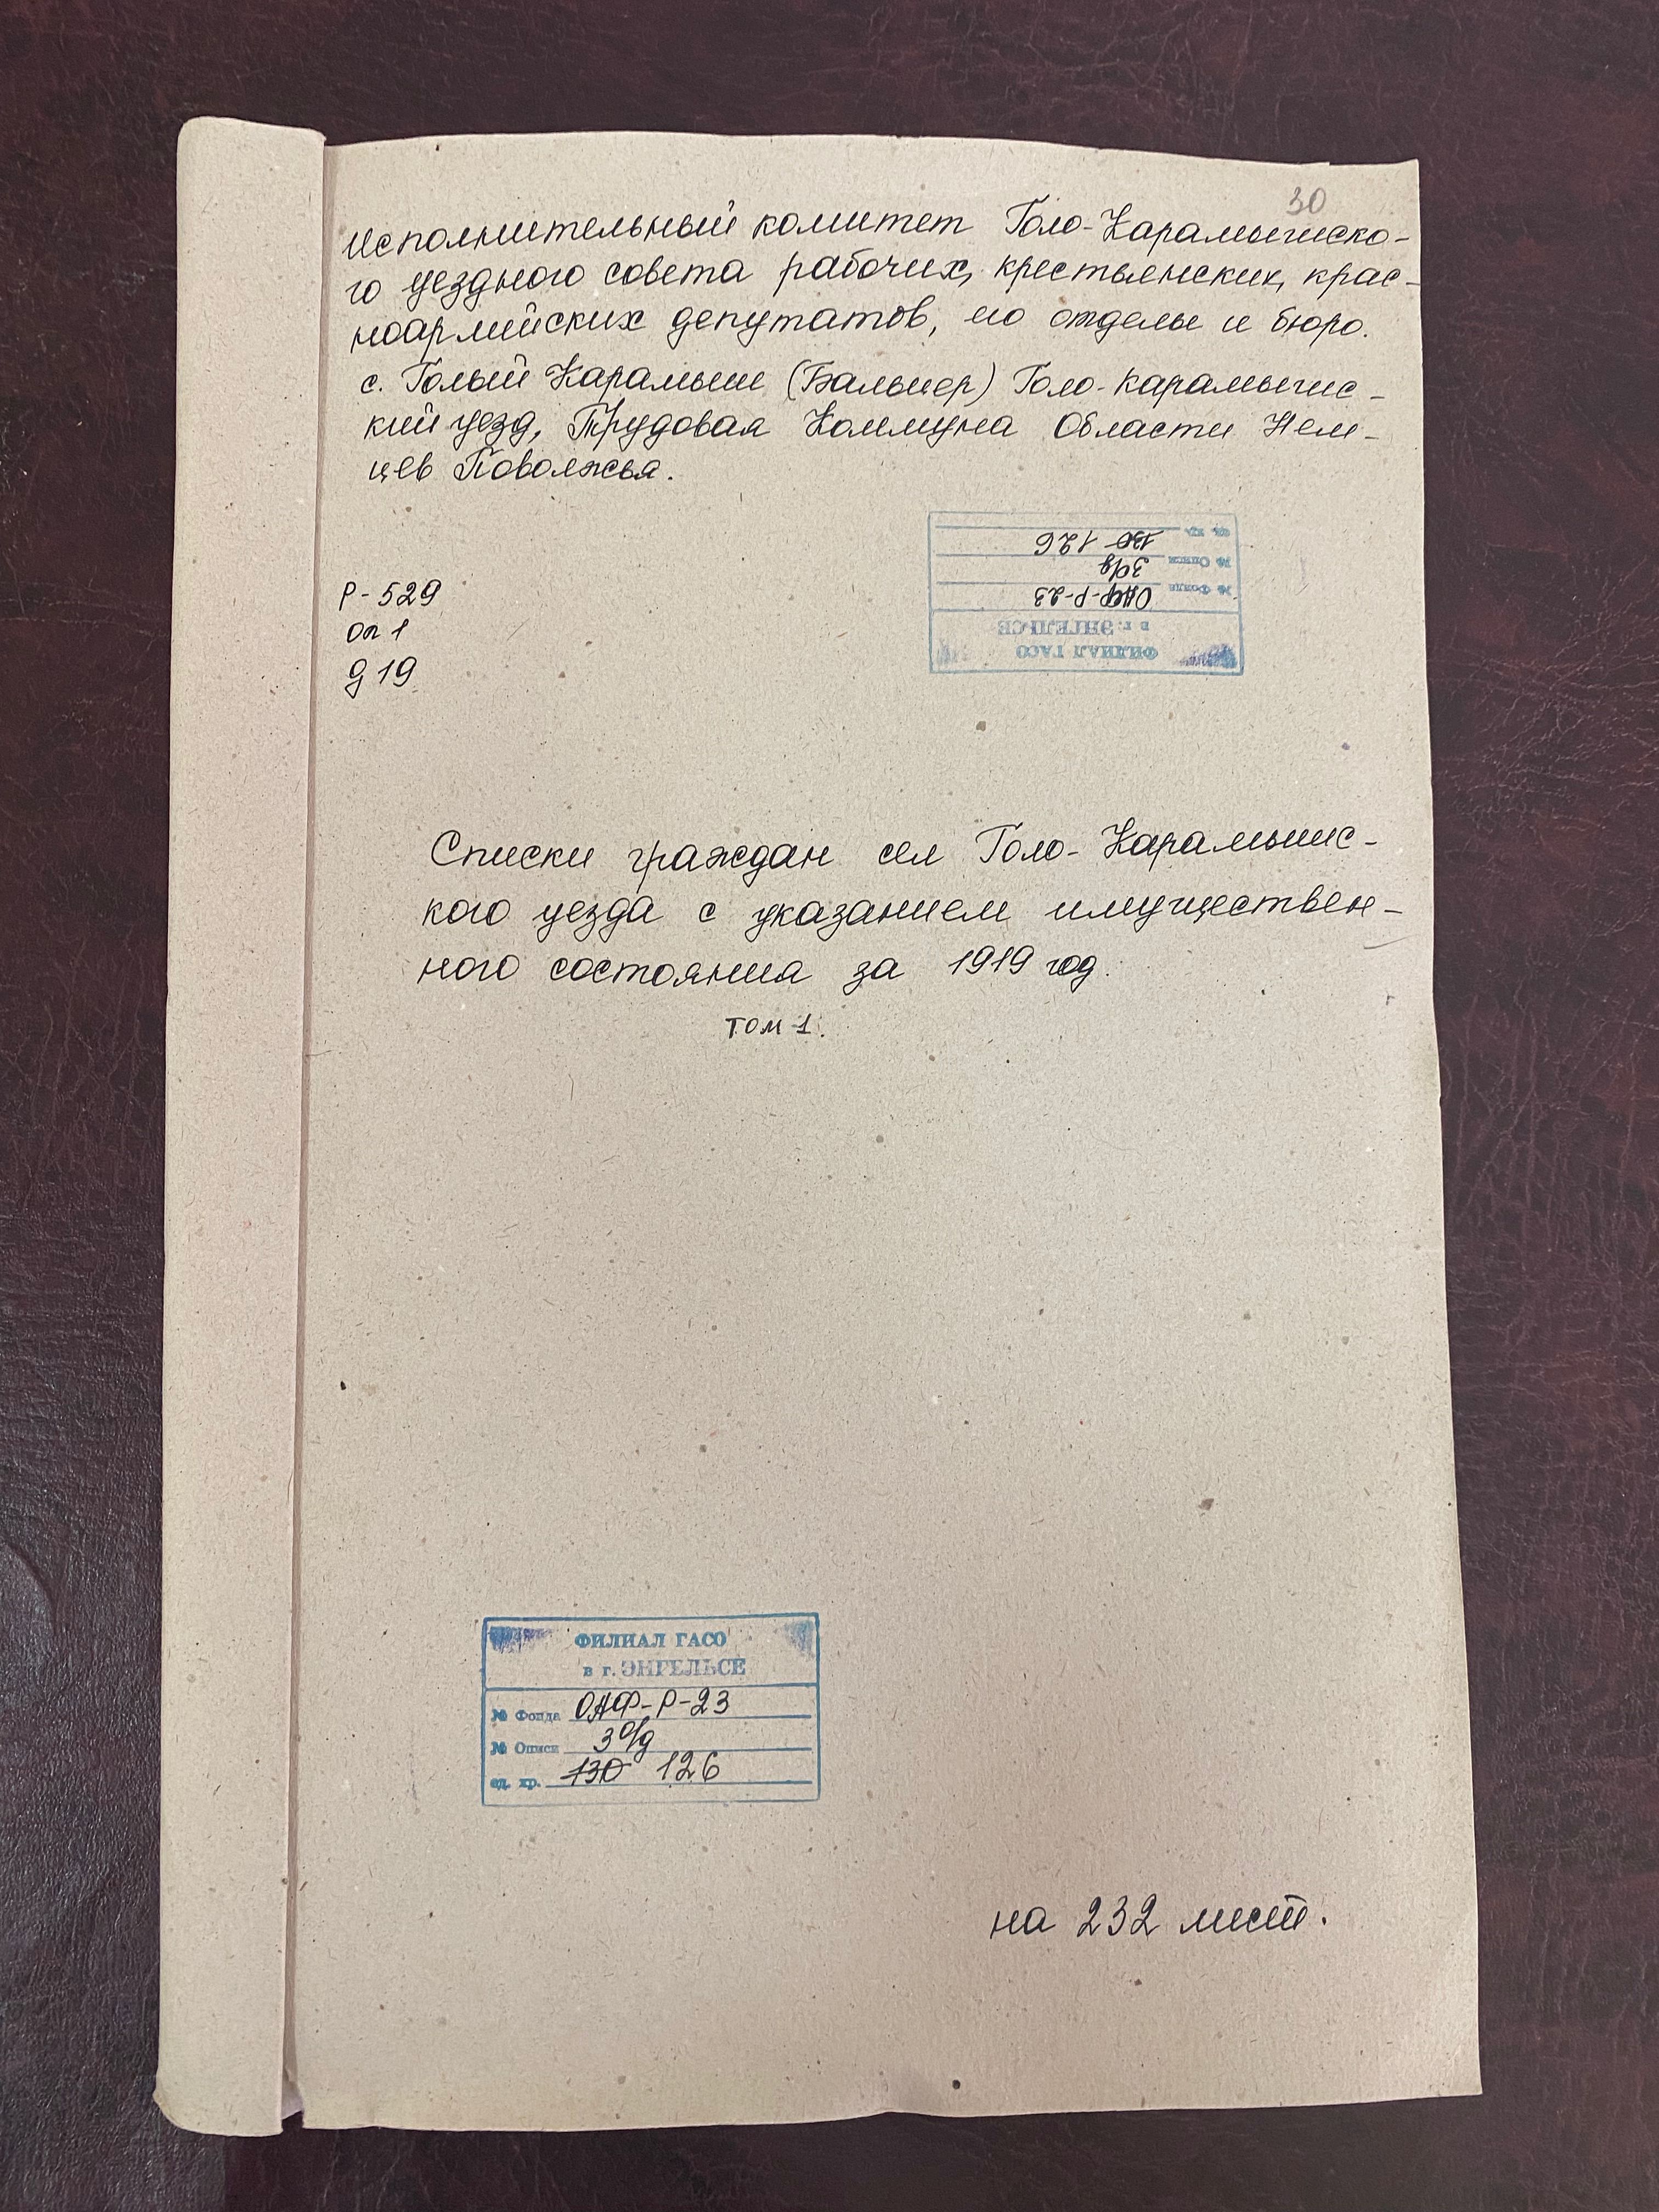 30
Исполнительный комитет Голо-Карамышско-
го уездного совета рабочих, крестьянских, крас-
ноармейских депутатов, его отделы и бюро.
с. Голый Карамыш (Бальцер) Голо-Карамышс-
кий уезд, Трудовая Коммуна Области Нем-
цев Поволжья.
ФИЛИАЛ ГАСО
в г. ЭНГЕЛЬСЕ
№ Фонда ОАФ-Р-23
№ Описи 3о/д
ед. хр. 130 126
Р-529
оп 1
д 19
Списки граждан сел Голо-Карамышс-
кого уезда с указанием имуществен-
ного состояния за 1919 год.
том 1.
ФИЛИАЛ ГАСО
в г. ЭНГЕЛЬСЕ
№ Фонда ОАФ-Р-23
№ Описи 3о/д
ед. хр. 130 126
на 232 лист.